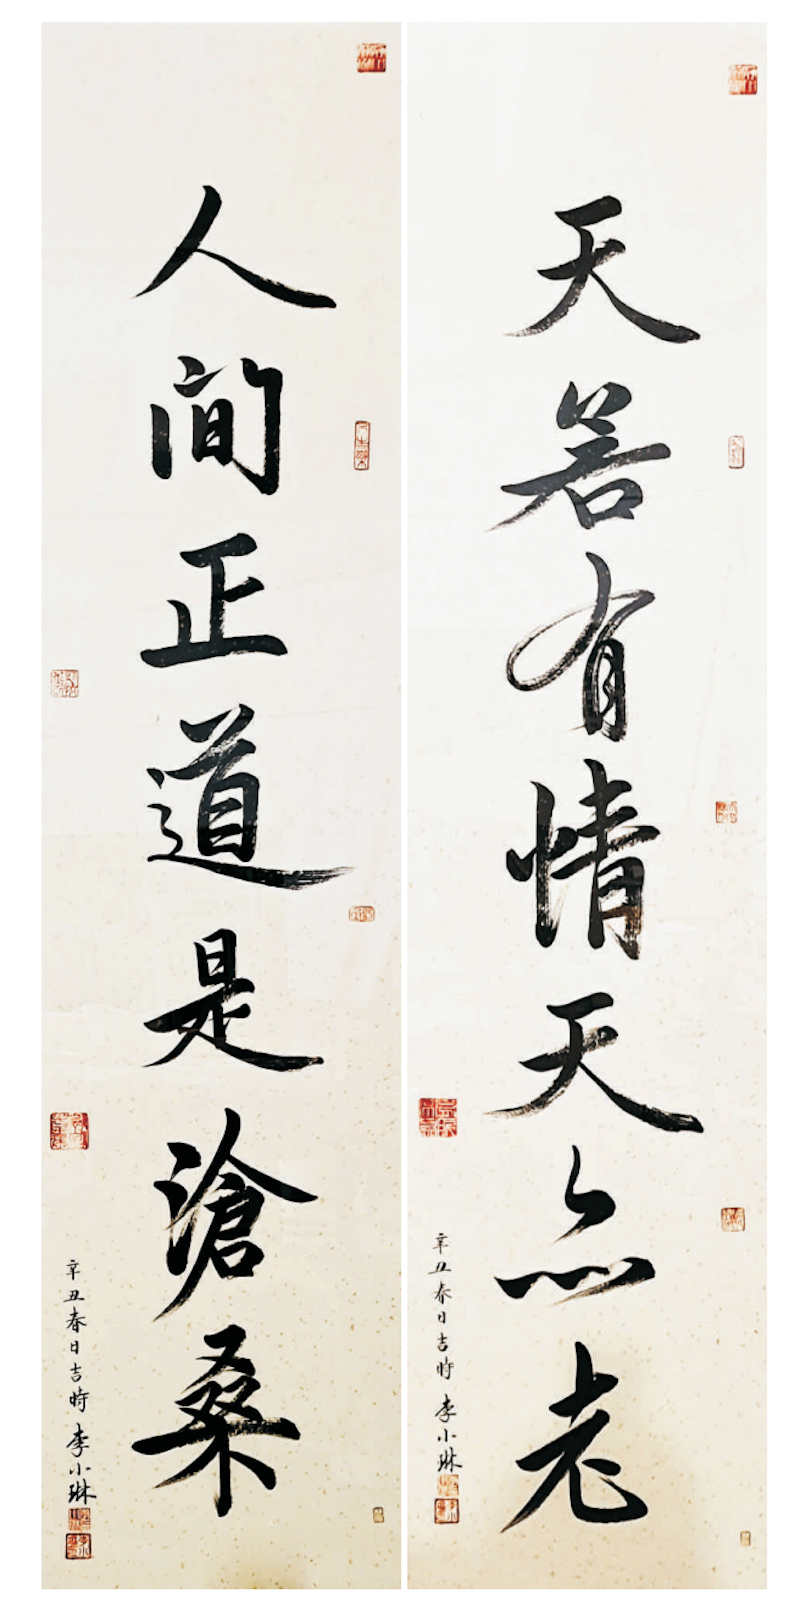 天若有情天亦老
辛丑春日吉時 李小琳
人间正道是滄桑
辛丑春日吉時 李小琳